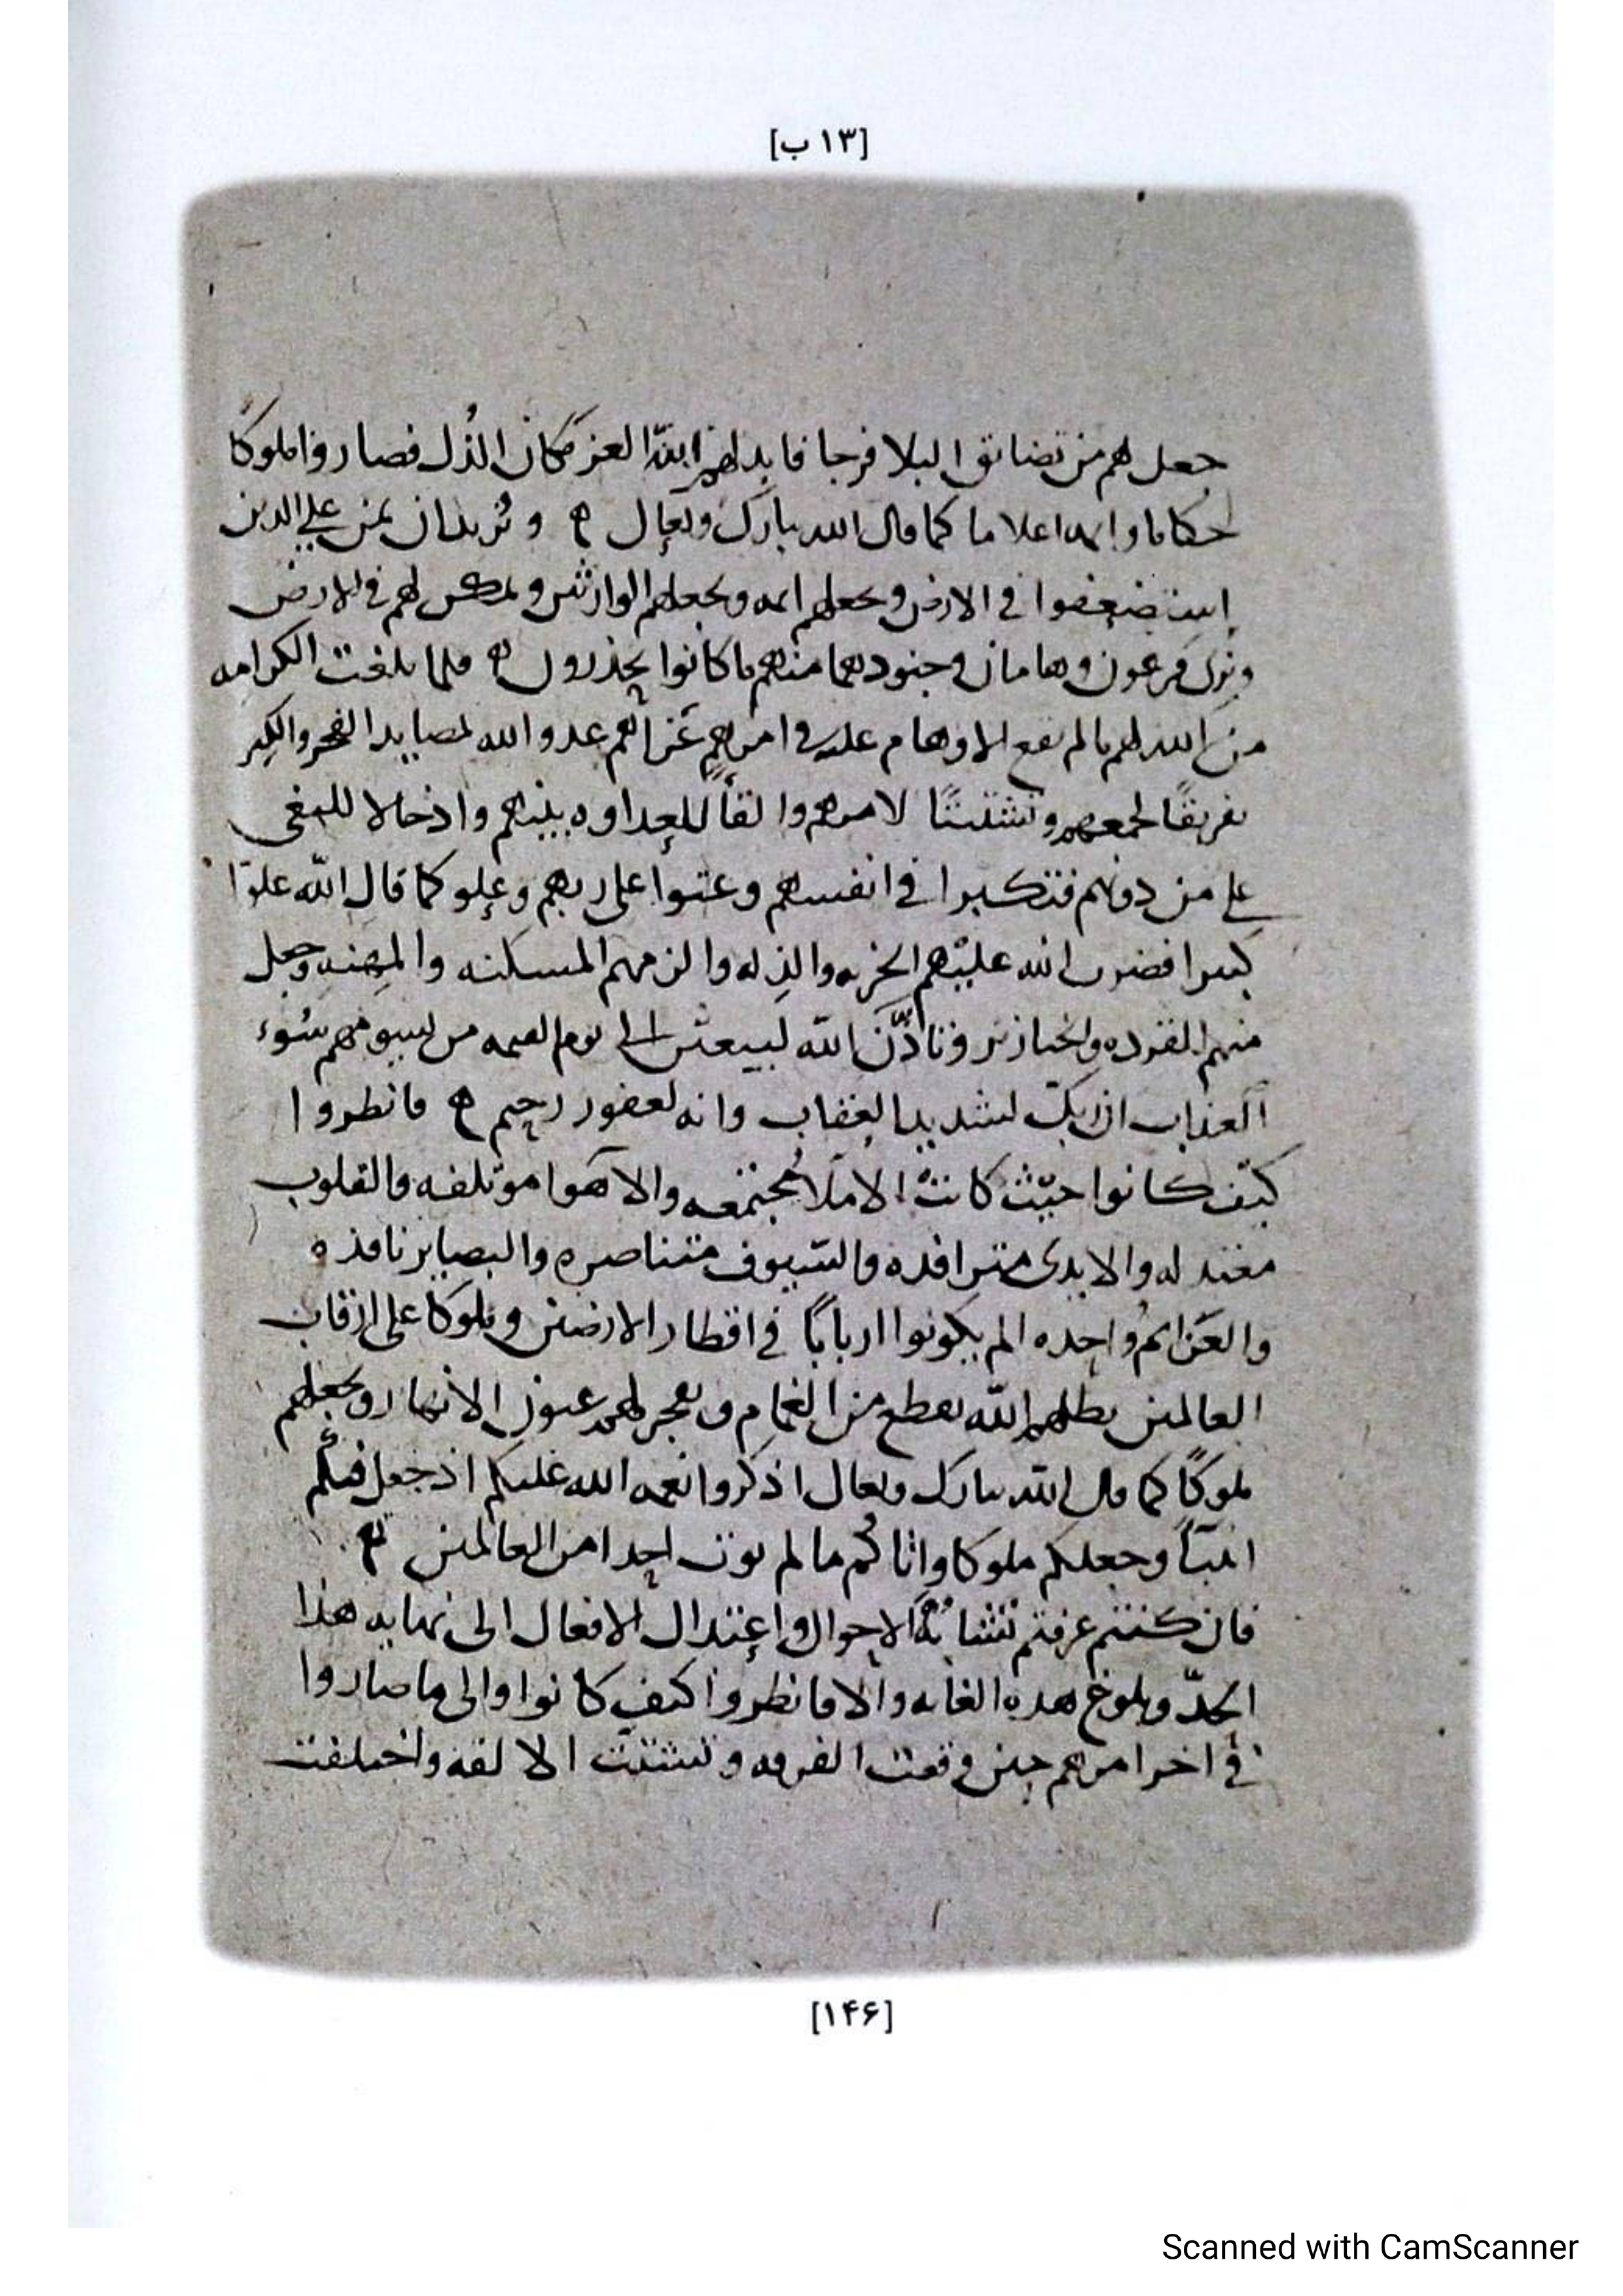 [۱۳ ب]
جعل لهم من تضايق البلا فرجا فابدلهم الله العز مكان الذل فصاروا ملوكا
حكاما وايمه اعلاما كما قال الله تبارك وتعالى ونريد ان نمن على الذين
استضعفوا في الارض ونجعلهم ايمه ونجعلهم الوارثين ونمكن لهم في الارض
ونري فرعون وهامان وجنودهما منهم ما كانوا يحذرون فلما بلغت الكرامه
من الله لهم ما لم تقع الاوهام عليه في امرهم عدو الله الفخر والكبر
تفريقا لجمعهم وتشتيتا لامرهم والقاً للعداوه بينهم وادخالا للبغى
على من دونهم فتكبروا في انفسهم وعتوا على ربهم وعلو كما قال الله علوّا
كبيرا فضرب الله عليهم الخزيه والذله والزمهم المسكنه والمهنه وجعل
منهم القرده والخنازير وتأذّن الله ليبعثن الى يوم القيمه من يسومهم سُوء
العذاب ان ربك لشديد العقاب وانه لغفور رحيم فانظروا
كيف كانوا حيث كانت الاملأ مجتمعه والاهوا موتلفه والقلوب
معتدله والايدى مترافده والسيوف متناصره والبصاير نافذه
والعزايم واحده الم يكونوا اربابًا في اقطار الارضين وملوكا على ارقاب
العالمين يظلهم الله بقطع من الغمام ويفجر لهم عيون الانهار ويجعلهم
ملوكًا كما قال الله تبارك وتعالى اذكروا نعمه الله عليكم اذ جعل فيكم
انبيآ وجعلكم ملوكا واتاكم ما لم يوت احدا من العالمين
فان كنتم عرفتم تشابه الاحوال واعتدال الافعال الى نهايه هذا
الحدّ وبلوغ هذه الغايه والا فانظروا كيف كانوا والى ما صاروا
في اخر امرهم حين وقعت الفرقه وتشتتت الالفه واختلفت
[۱۴۶]
Scanned with CamScanner